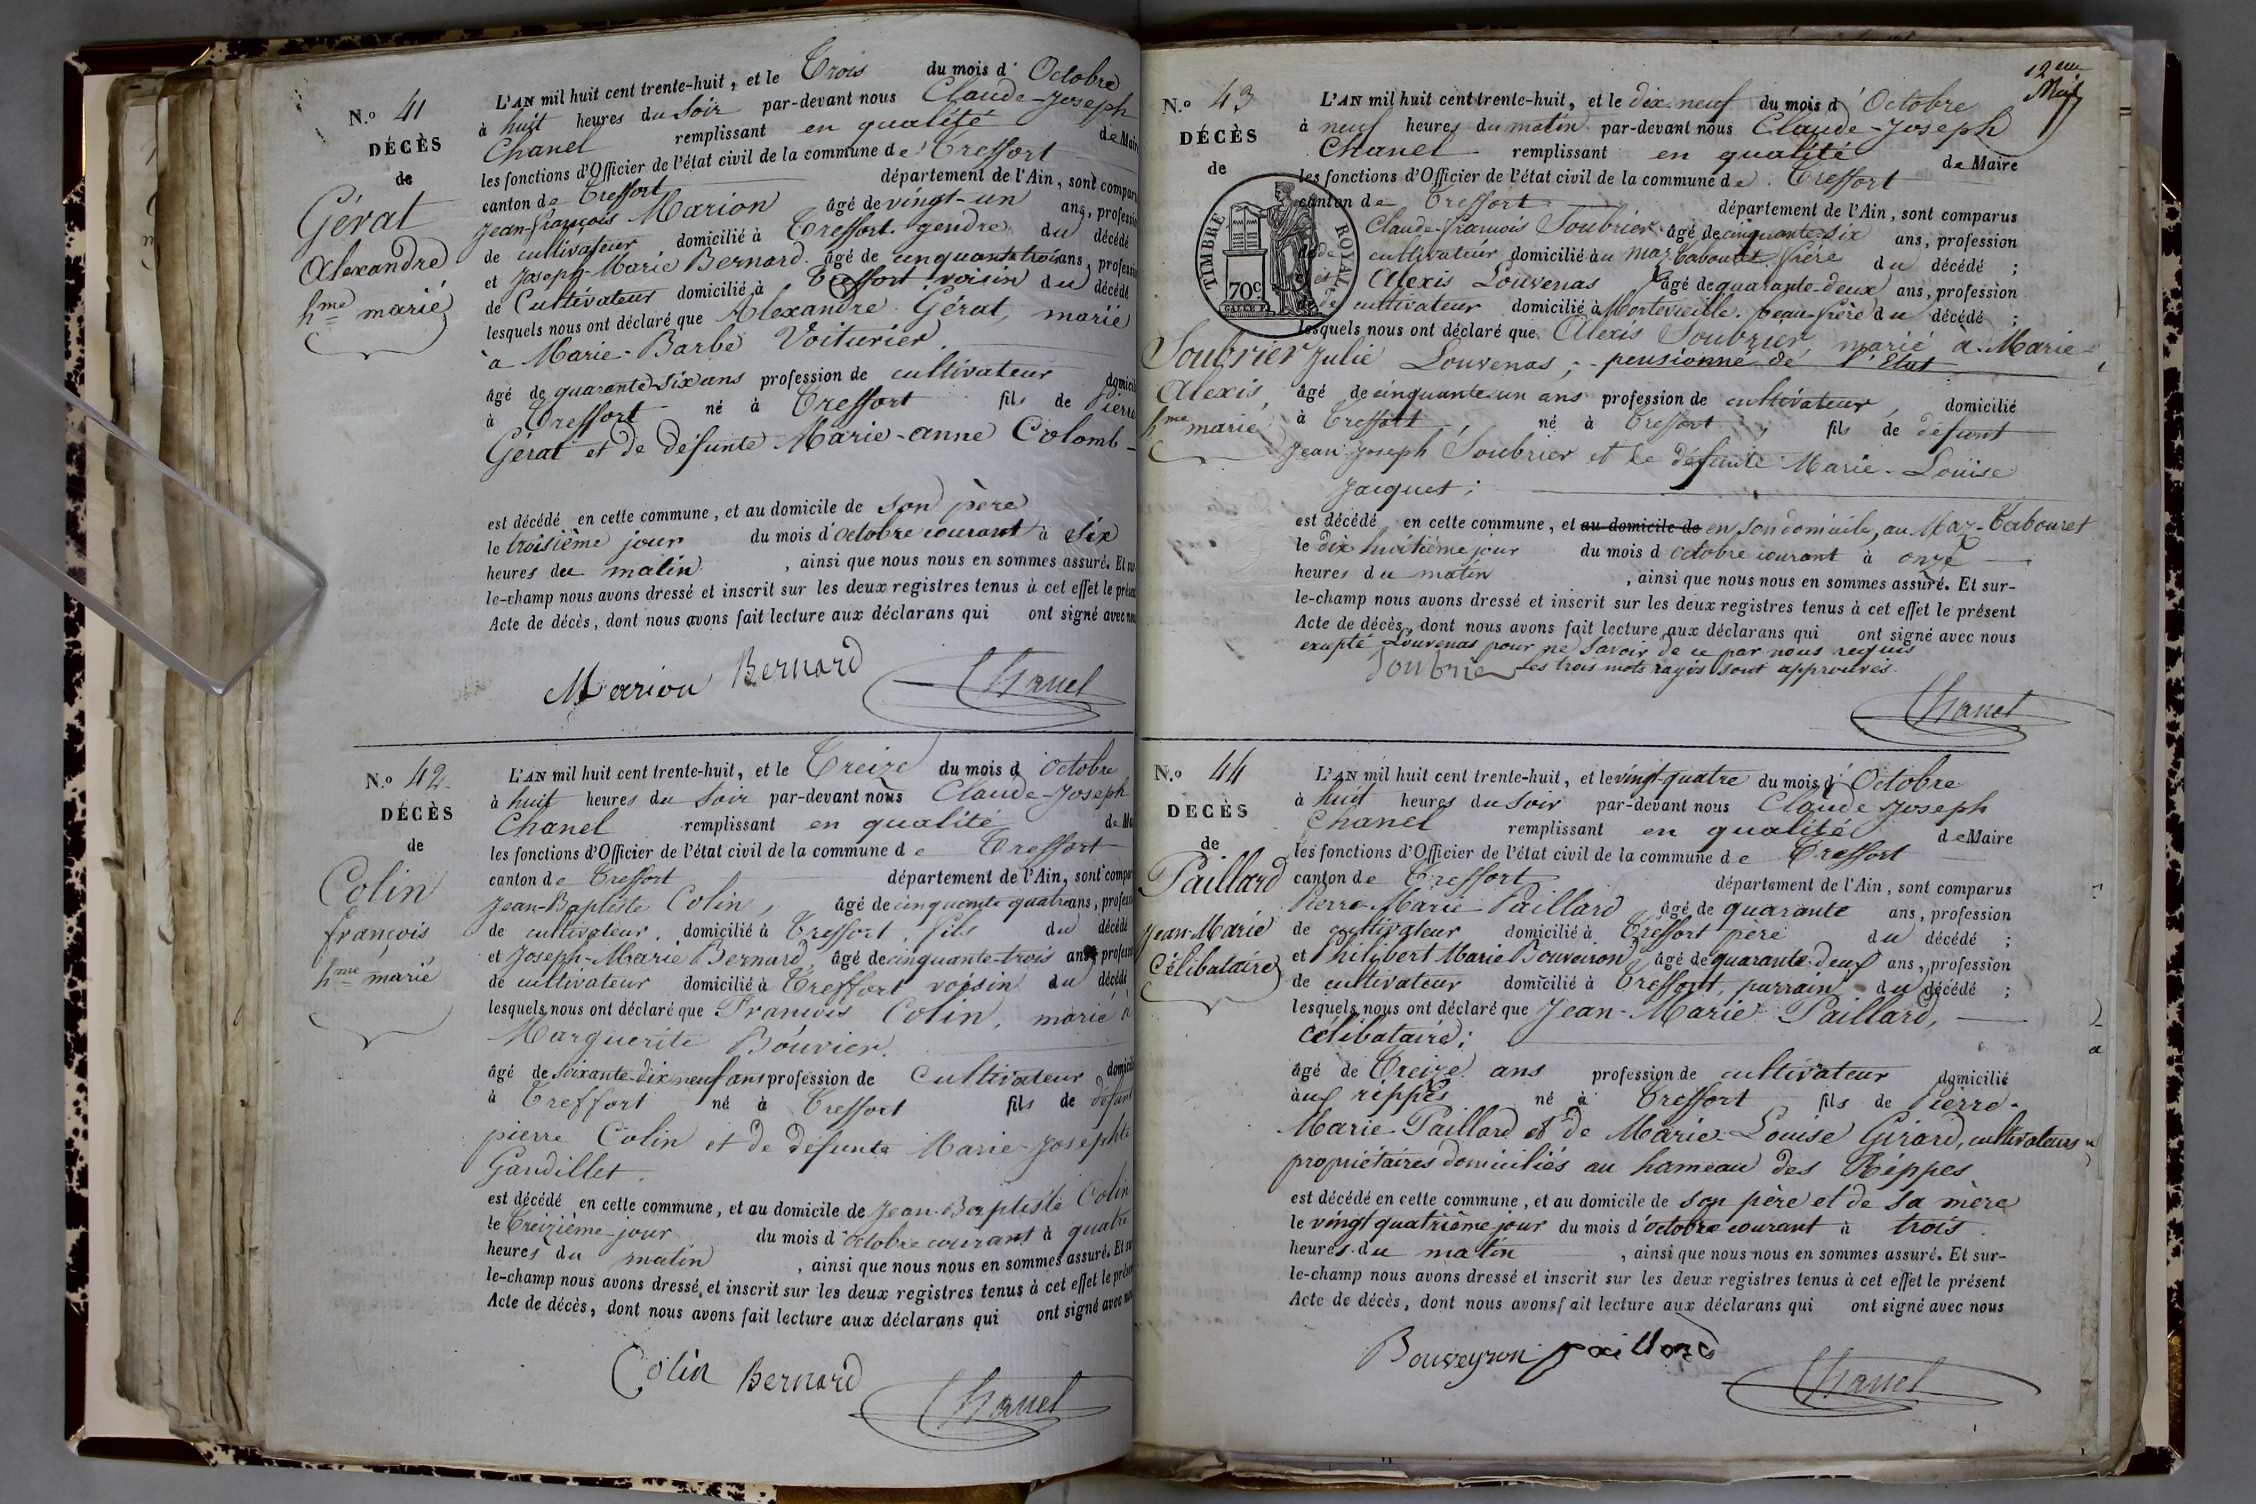 N.° 41
DÉCÈS
de
Gérat
Alexandre
hme marié
L'AN mil huit cent trente-huit, et le Trois du mois d' Octobre
à huit heures du Soir par-devant nous Claude-Joseph
Chanel remplissant en qualité de Maire
les fonctions d'Officier de l'état civil de la commune de Treffort
canton de Treffort département de l'Ain, sont comparu
Jean-françois Marion âgé de vingt-un ans, profession
de cultivateur domicilié à Treffort. gendre du décédé
et Joseph-Marie Bernard. âgé de cinquante trois ans, profession
de Cultivateur domicilié à Treffort voisin du décédé
lesquels nous ont déclaré que Alexandre Gérat, marié
à Marie-Barbe Voiturier.
âgé de quarante-six ans profession de cultivateur domicilié
à Treffort né à Treffort fils de Pierre
Gérat et de défunte Marie-anne Colomb-
est décédé en cette commune, et au domicile de son père
le troisième jour du mois d'octobre courant à six
heures du matin, ainsi que nous nous en sommes assuré. Et sur-
le-champ nous avons dressé et inscrit sur les deux registres tenus à cet effet le présent
Acte de décès, dont nous avons fait lecture aux déclarans qui ont signé avec nous
Marion Bernard Chanel
N.° 42
DÉCÈS
de
Colin
françois
hme marié
L'AN mil huit cent trente-huit, et le Treize du mois d octobre
à huit heures du Soir par-devant nous Claude-Joseph
Chanel remplissant en qualité de Ma
les fonctions d'Officier de l'état civil de la commune de Treffort
canton de Treffort département de l'Ain, sont compar
Jean-Baptiste Colin, âgé de cinquante quatre ans, profess
de cultivateur. domicilié à Treffort fils du décédé
et Joseph-Marie Bernard, âgé de cinquante-trois ans profess
de cultivateur domicilié à Treffort voisin du décédé
lesquels nous ont déclaré que François Colin, marié à
Marguerite Bouvier.
âgé de soixante-dix neuf ans profession de Cultivateur domicili
à Treffort né à Treffort fils de défunt
pierre Colin et de défunte Marie-Josephte
Gandillet.
est décédé en cette commune, et au domicile de Jean-Baptiste Colin
le Treizième jour du mois d'octobre courant à quatre
heures du matin, ainsi que nous nous en sommes assuré. Et su
le-champ nous avons dressé et inscrit sur les deux registres tenus à cet effet le présen
Acte de décès, dont nous avons fait lecture aux déclarans qui ont signé avec nou
Colin Bernard Chanel
12eme
N.° 43
DÉCÈS
de
TIMBRE ROYAL
70c
Soubrier
Alexis,
hme marié
L'AN mil huit cent trente-huit, et le dix-neuf du mois d' Octobre
à neuf heures du matin par-devant nous Claude-Joseph
Chanel remplissant en qualité de Maire
les fonctions d'Officier de l'état civil de la commune de Treffort
canton de Treffort département de l'Ain, sont comparus
Claude-françois Soubrier âgé de cinquante-six ans, profession
de cultivateur domicilié au Maz-Tabouret frère du décédé ;
et Alexis Louvenas âgé de quarante-deux ans, profession
de cultivateur domicilié à Montevieille. beau-frère du décédé ;
lesquels nous ont déclaré que Alexis Soubrier marié à Marie-
Julie Louvenas; - pensionné de l'Etat
âgé de cinquante-un ans profession de cultivateur, domicilié
à Treffort né à Treffort; fils de défunt
Jean-Joseph Soubrier et de défunte Marie-Louise
Jacquet;
est décédé en cette commune, et au domicile de en son domicile, au Maz-Tabouret
le dix huitième jour du mois d octobre courant à onze
heures du matin, ainsi que nous nous en sommes assuré. Et sur-
le-champ nous avons dressé et inscrit sur les deux registres tenus à cet effet le présent
Acte de décès, dont nous avons fait lecture aux déclarans qui ont signé avec nous
exepté Louvenas pour ne savoir de ce par nous requis
Soubrier Les trois mots rayés sont approuvés.
Chanel
N.° 44
DECÈS
de
Paillard
Jean-Marie
Célibataire
L'AN mil huit cent trente-huit, et le vingt-quatre du mois d' Octobre
à huit heures du Soir par-devant nous Claude Joseph
Chanel remplissant en qualité de Maire
les fonctions d'Officier de l'état civil de la commune de Treffort
canton de Treffort département de l'Ain, sont comparus
Pierre-Marie Paillard âgé de quarante ans, profession
de cultivateur domicilié à Treffort père du décédé ;
et Philibert Marie Bouveiron, âgé de quarante-deux ans, profession
de cultivateur domicilié à Treffort, parrain du décédé ;
lesquels nous ont déclaré que Jean-Marie Paillard,
célibataire;
âgé de Treize ans profession de cultivateur domicilié
aux réppes né à Treffort fils de Pierre-
Marie Paillard et de Marie-Louise Girard, cultivateurs
propriétaires domiciliés au hameau des Réppes
est décédé en cette commune, et au domicile de son père et de sa mère
le vingt quatrième jour du mois d'octobre courant à trois
heures du matin, ainsi que nous nous en sommes assuré. Et sur-
le-champ nous avons dressé et inscrit sur les deux registres tenus à cet effet le présent
Acte de décès, dont nous avons fait lecture aux déclarans qui ont signé avec nous
Bouveyron paillard
Chanel